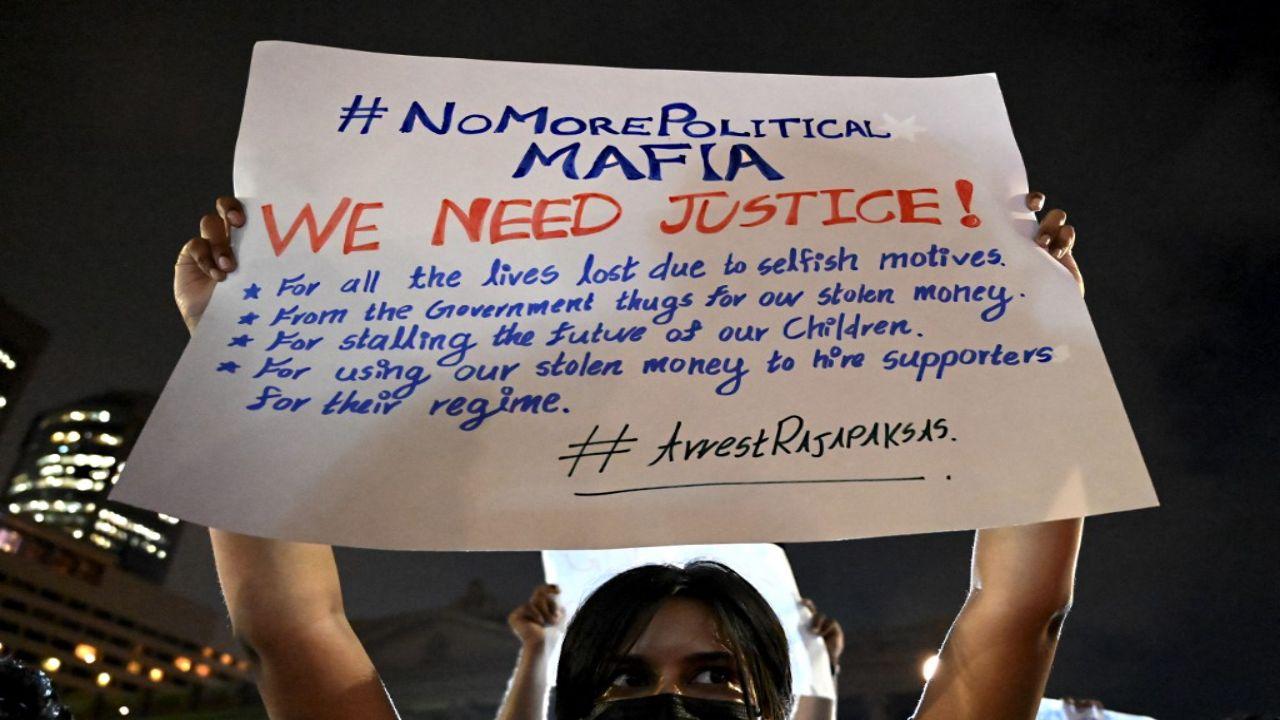 #NoMorePolitical
MAFIA
WE NEED JUSTICE!
* For all the lives lost due to selfish motives.
* From the Government thugs for our stolen money.
* For stalling the future of our Children.
* For using our stolen money to hire supporters
for their regime.
#ArrestRajapaksas.